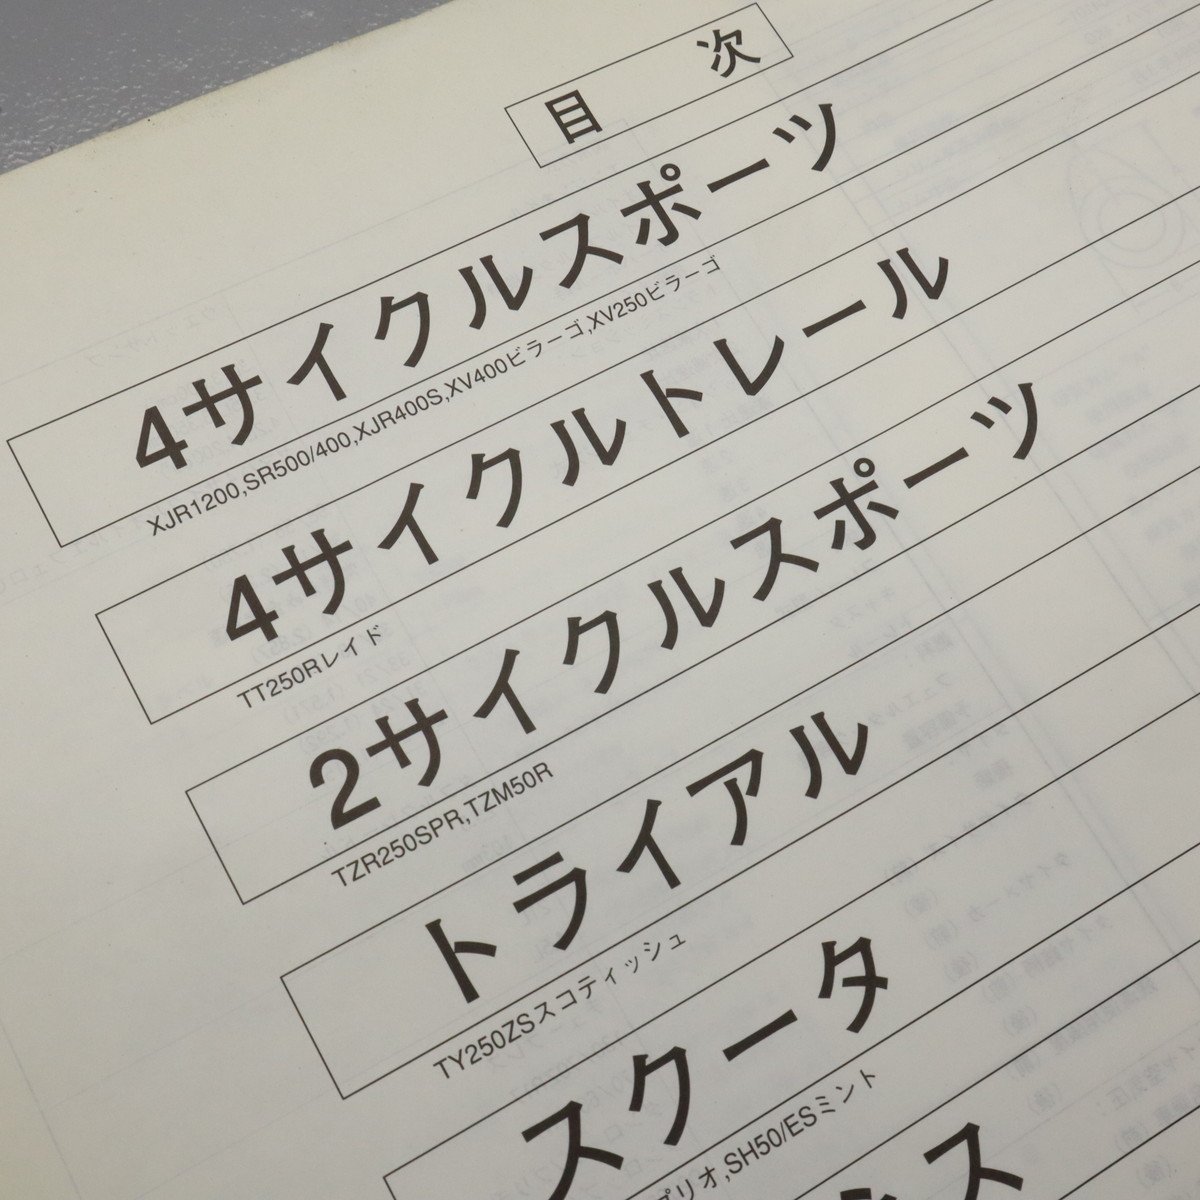 目 次
4サイクルスポーツ
XJR1200,SR500/400,XJR400S,XV400ビラーゴ,XV250ビラーゴ
4サイクルトレール
TT250Rレイド
2サイクルスポーツ
TZR250SPR,TZM50R
トライアル
TY250ZSスコティッシュ
スクータ
プリオ,SH50/ESミント
ス